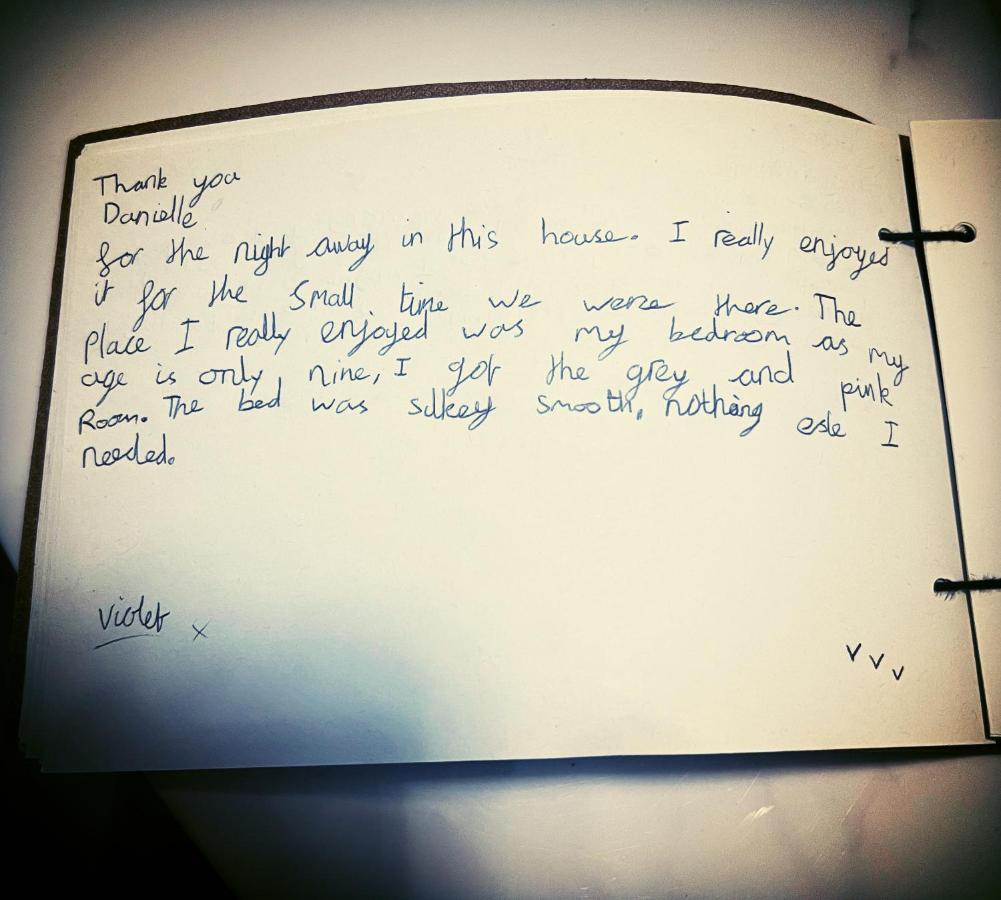 Thank you
Danielle
for the night away in this house. I really enjoyed
it for the small time we were there. The
Place I really enjoyed was my bedroom as my
age is only nine, I got the grey and pink
Room. The bed was silkey smooth, nothing esle I
needed.
violet x
v v v